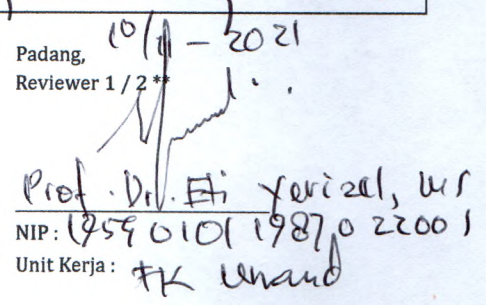 Padang, 10/11 - 2021
Reviewer 1 / 2 **
Prof. Dr. Eti Yerizel, MS
NIP : 19590101 1987 0 22001
Unit Kerja : FK Unand